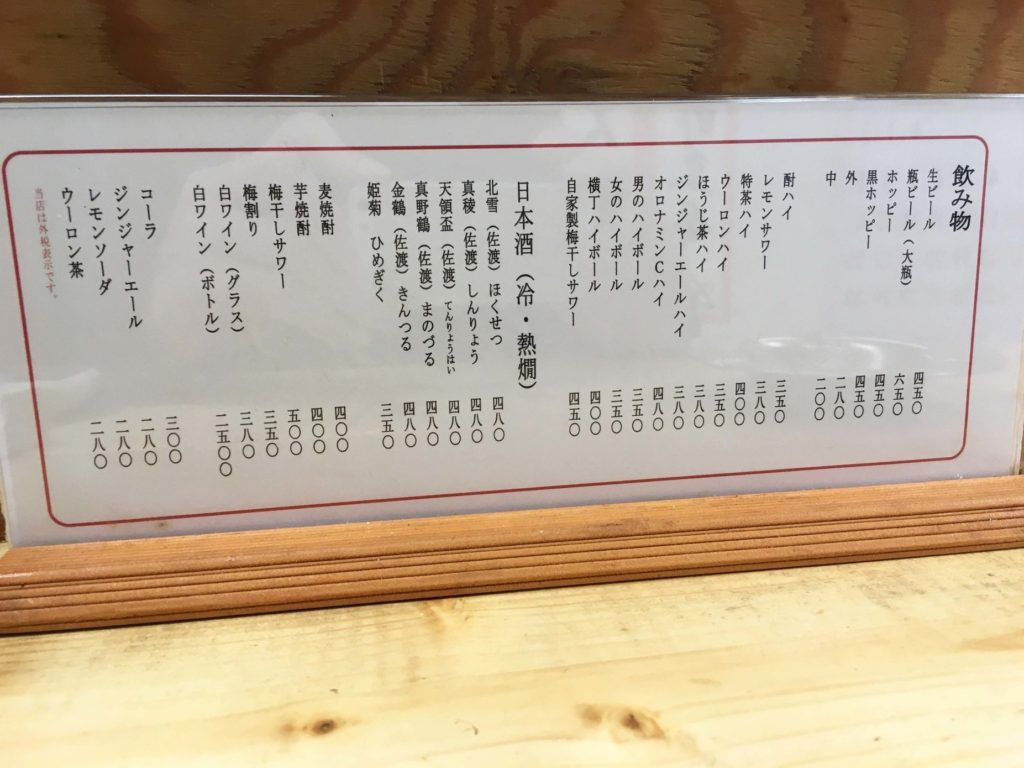 飲み物
生ビール 四五〇
瓶ビール(大瓶) 六五〇
ホッピー 四五〇
黒ホッピー 四五〇
外 二八〇
中 二〇〇
酎ハイ 三五〇
レモンサワー 三八〇
特茶ハイ 四〇〇
ウーロンハイ 三五〇
ほうじ茶ハイ 三八〇
ジンジャーエールハイ 三八〇
オロナミンCハイ 四八〇
男のハイボール 三五〇
女のハイボール 三五〇
横丁ハイボール 四〇〇
自家製梅干しサワー 四五〇
日本酒(冷・熱燗)
北雪(佐渡)ほくせつ 四八〇
真稜(佐渡)しんりょう 四八〇
天領盃(佐渡)てんりょうはい 四八〇
真野鶴(佐渡)まのづる 四八〇
金鶴(佐渡)きんつる 四八〇
姫菊 ひめぎく 三五〇
麦焼酎 四〇〇
芋焼酎 四〇〇
梅干しサワー 五〇〇
梅割り 三五〇
白ワイン(グラス) 三八〇
白ワイン(ボトル) 二五〇〇
コーラ 三〇〇
ジンジャーエール 二八〇
レモンソーダ 二八〇
ウーロン茶 二八〇
当店は外税表示です。